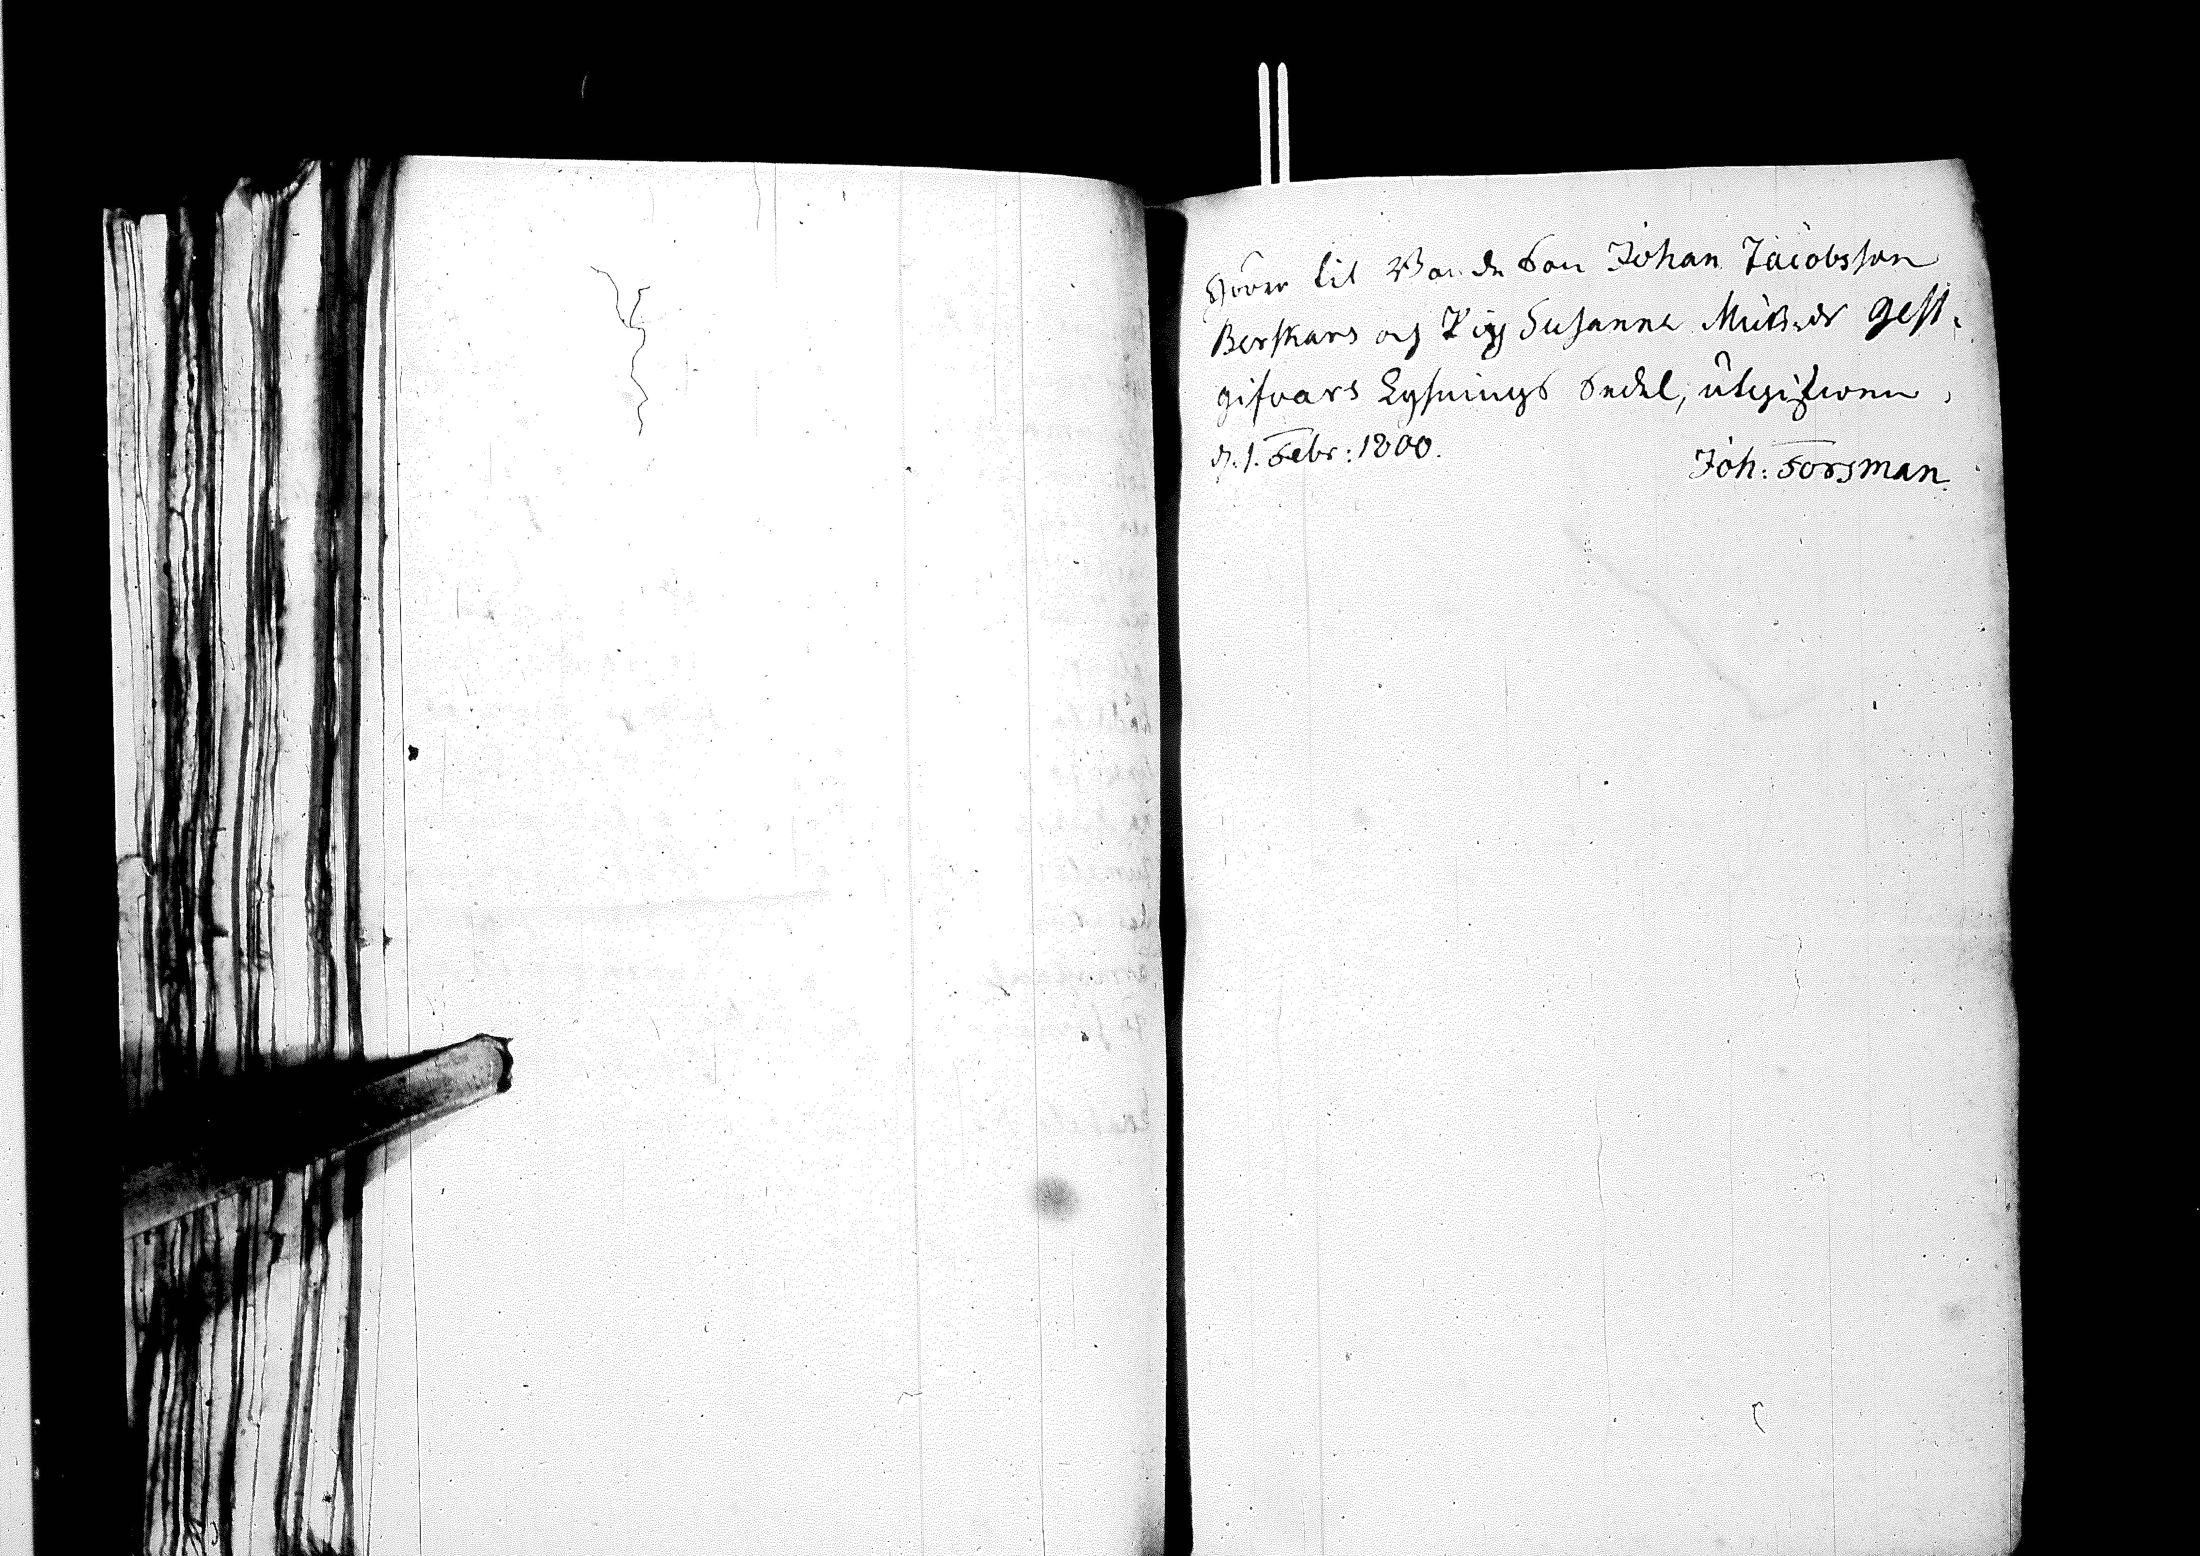 Hörer til Bonde Son Johan Jacobsson
Berskars och Pig Susanna Mickels gest-
gifvars Lysnings Sedel, utgifwen
d. 1. Febr: 1800.
Joh: Forsman.